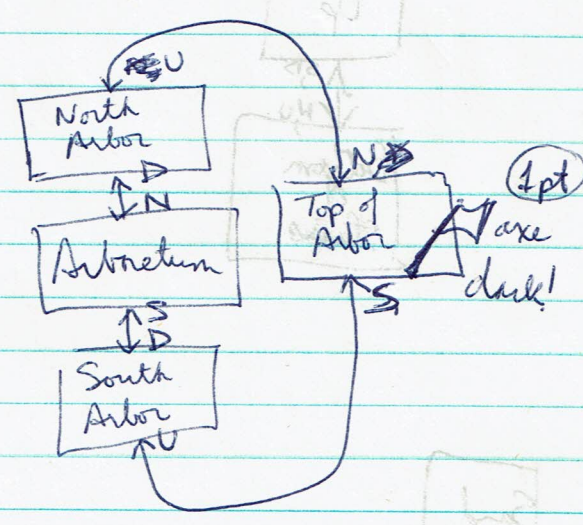 U
North
Arbor
D
N
Arboretum
S
D
South
Arbor
U
N
Top of
Arbor
S
1pt
axe
dark!